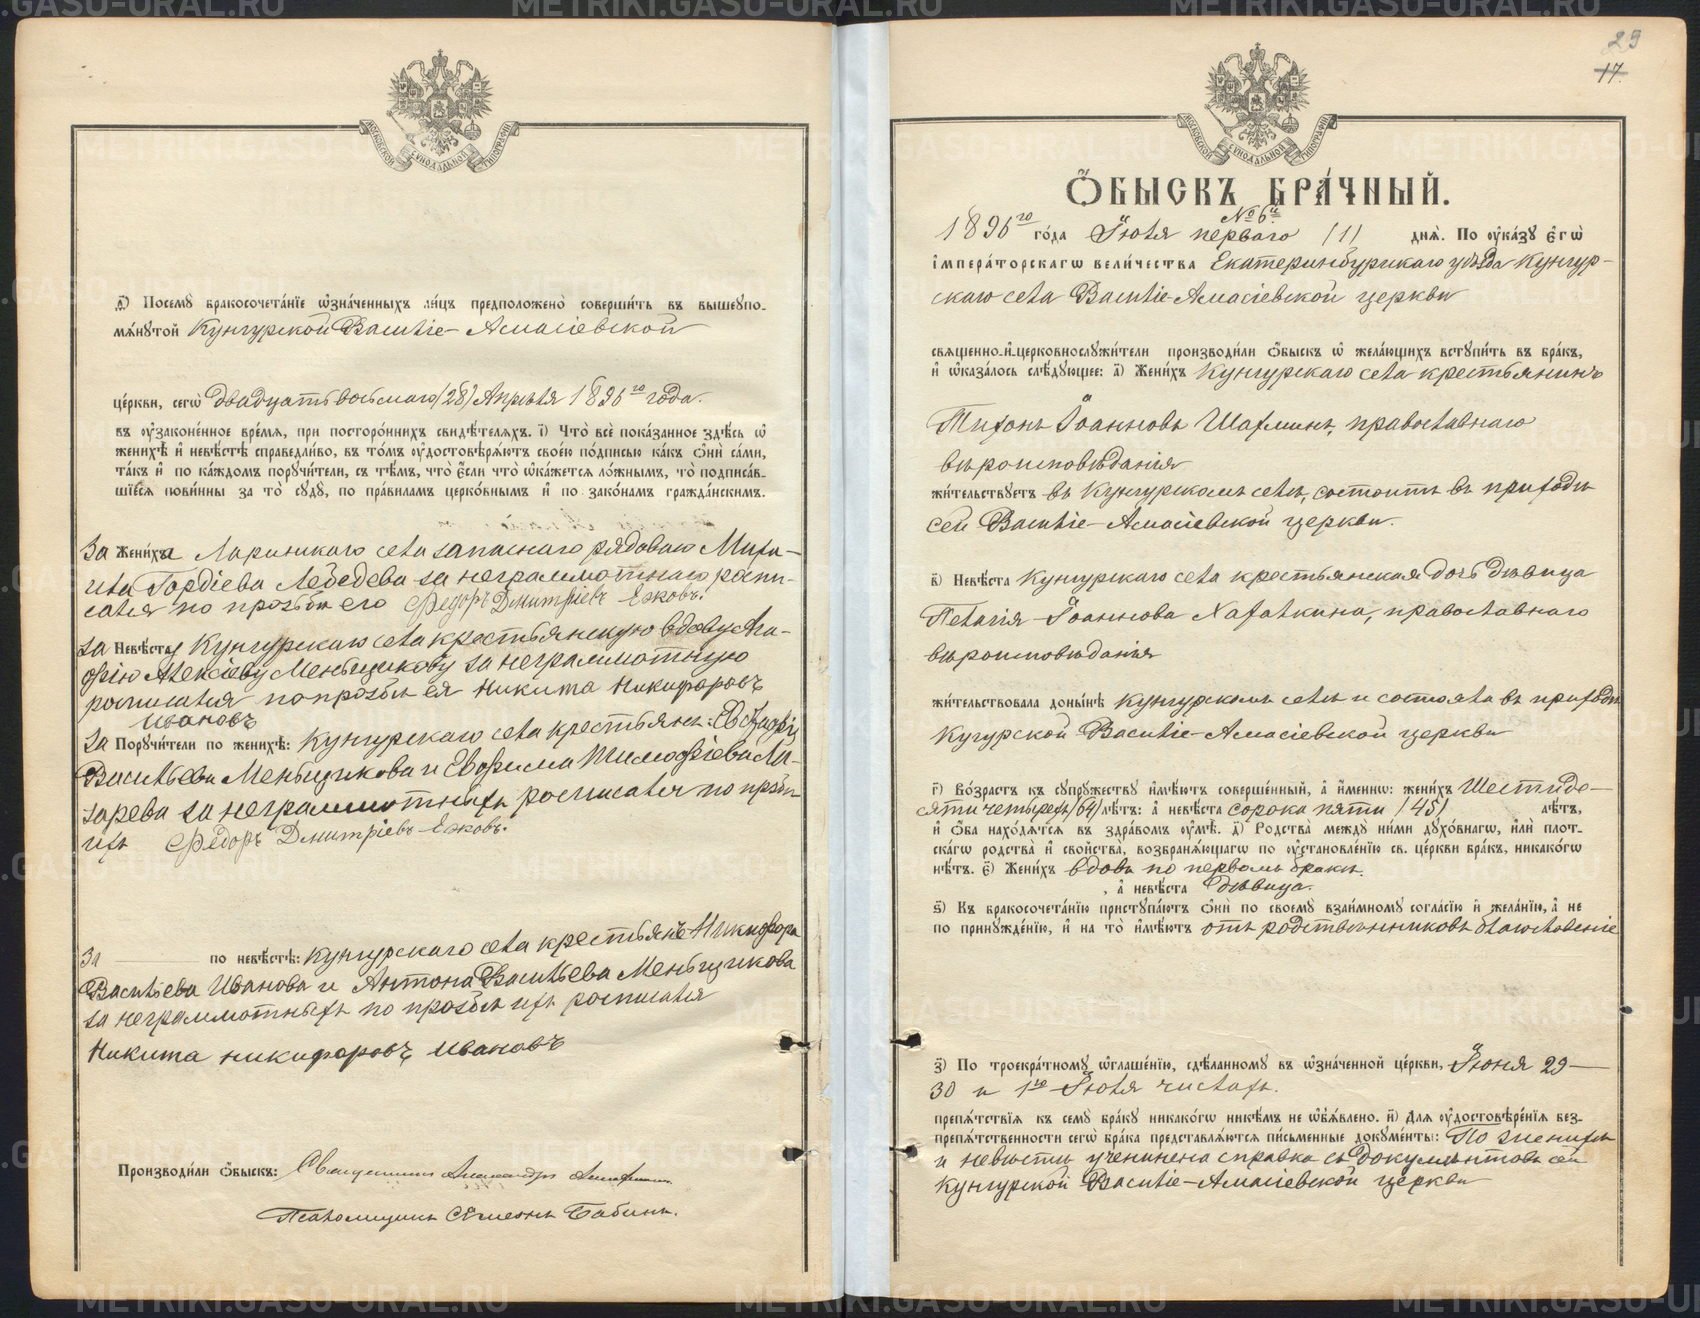 ѳ҃) Посему бракосочетанїе ѡзначенныхъ лицъ предположено совершить въ вышеупо-
мянутой Кунгурской Василіе-Амасіевской
церкви, сегѡ двадцать восьмаго (28) Апрѣля 1896го года.
въ оузаконенное время, при постороннихъ свидѣтеляхъ. і҃) Что все показанное здѣсь ѡ
женихѣ и невѣстѣ справедливо, въ томъ оудостовѣряютъ своею подписью какъ ѻни сами,
такъ и по каждомъ поручители, съ тѣмъ, что если что ѡкажется ложнымъ, то подписав-
шїеся повинны за то суду, по правиламъ церковнымъ и по законамъ гражданскимъ.
За Жениха Ларинскаго села запаснаго рядоваго Миха-
ила Гордіева Лебедева за неграмотнаго роспи-
сался по прозьбѣ его Федоръ Дмитріевъ Ежовъ.
За Невѣсту Кунгурскаго села крестьянскую вдову Ага-
фію Алексіеву Меньщикову за неграммотную
росписался по прозьбѣ ея Никита Никифоровъ
Ивановъ
За Поручители по женихѣ: Кунгурскаго села крестьянъ:
Васильева Меньщикова и Евфима Тимофіева Ла-
зарева за неграммотныхъ росписался по прозьбѣ
ихъ Федоръ Дмитріевъ Ежовъ.
За по невѣстѣ: Кунгурскаго села крестьянъ Никифора
Васильева Иванова и Антона Васильева Меньщикова
за неграммотныхъ по прозьбѣ ихъ росписался
Никита Никифоровъ Ивановъ
Производили ѻбыскъ: Священникъ Александръ
Псаломщикъ Симеонъ Бабинъ.
29
17.
МОСКОВСКОЙ СУНОДАЛЬНОЙ ТИПОГРАФІИ
Ѻбыскъ брачный.
№ 6й
1896го года Іюля перваго (1) дня. По оуказу Егѡ
Императорскагѡ величества Екатеринбургскаго уѣзда Кунгур-
скаго села Василіе-Амасіевской церкви
священно-и-церковнослужители производили ѻбыскъ ѡ желающихъ вступить въ бракъ,
и ѡказалось слѣдующее: а҃) Женихъ Кунгурскаго села крестьянинъ
Тихонъ Іоанновъ Шахминъ, православнаго
вѣроисповѣданія
жительствуетъ въ Кунгурскомъ селѣ, состоитъ въ приходѣ
сей Василіе-Амасіевской церкви.
в҃) Невѣста Кунгурскаго села крестьянская дочь дѣвица
Пелагія Іоаннова Халалкина, православнаго
вѣроисповѣданія
жительствовала донынѣ Кунгурскомъ селѣ и состояла въ приходѣ
Кугурской Василіе-Амасіевской церкви
г҃) Возрастъ къ супружеству имѣютъ совершенный, а именнѡ: женихъ Шестиде-
сяти четырехъ (64) лѣтъ: а невѣста сорока пяти (45) лѣтъ,
и ѻба находятся въ здравомъ оумѣ. д҃) Родства между ними духовнагѡ, или плот-
скагѡ родства и свойства, возбраняющагѡ по оустановленїю св. церкви бракъ, никакогѡ
нѣтъ. є҃) Женихъ вдовъ по первомъ бракѣ.
, а невѣста дѣвица.
ѕ҃) Къ бракосочетанїю приступаютъ ѻни по своему взаимному согласїю и желанїю, а не
по принужденїю, и на то имѣютъ отъ родственниковъ благословеніе
з҃) По троекратному ѡглашенїю, сдѣланному въ ѡзначенной церкви, Іюня 29
30 и 1го Іюля числахъ.
препятствїя къ сему браку никакогѡ никѣмъ не ѡбъявлено. и҃) Для оудостовѣренїя без-
препятственности сегѡ брака представляются письменные документы: По женихѣ
и невѣстѣ учинена справка съ документовъ сей
Кунгурской Василіе-Амасіевской церкви